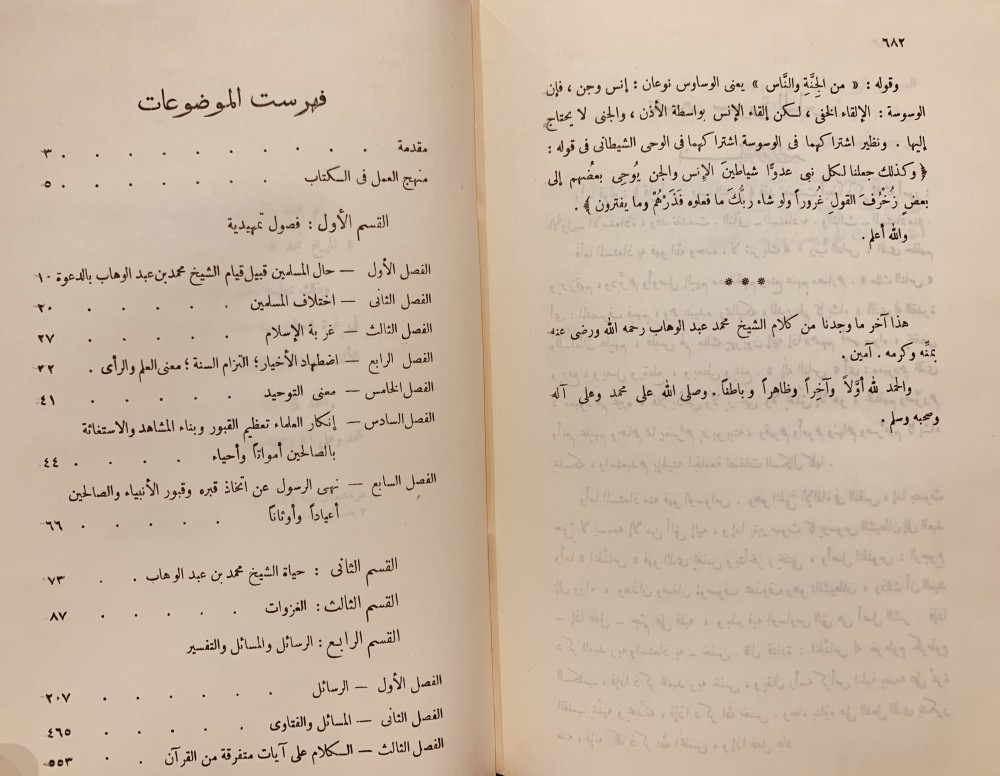 ٦٨٢
وقوله : « من الجِنَّةِ والنَّاس » يعنى الوساوس نوعان : إنس وجن ، فإن
الوسوسة : الإلقاء الخفى ، لكن إلقاء الإنس بواسطة الأذن ، والجنى لا يحتاج
إليها . ونظير اشتراكهما فى الوسوسة اشتراكهما فى الوحى الشيطانى فى قوله :
﴿ وكذلك جعلنا لكل نبى عدوًّا شياطينَ الإنس والجن يُوحِى بعضُهم إلى
بعضٍ زُخْرُفَ القولِ غُروراً ولو شاء ربُّكَ ما فعلوه فَذَرْهُمْ وما يفترون ﴾ .
والله أعلم .
* * *
هذا آخر ما وجدنا من كلام الشيخ محمد عبد الوهاب رحمه الله ورضى عنه
بمنِّه وكرمه . آمين .
والحمد لله أوّلاً وآخِراً وظاهراً وباطناً . وصلى الله على محمد وعلى آله
وصحبه وسلم .
فهرست الموضوعات
مقدمة . . . . . . . . . . ٣
منهج العمل فى الكتاب . . . . . . . ٥
القسم الأول : فصول تمهيدية
الفصل الأول — حال المسلمين قبيل قيام الشيخ محمد بن عبد الوهاب بالدعوة ١٠
الفصل الثانى — اختلاف المسلمين . . . . . ٢٠
الفصل الثالث — غربة الإسلام . . . . . ٢٧
الفصل الرابع — اضطهاد الأخيار ؛ التزام السنة ؛ معنى العلم والرأى . ٣٢
الفصل الخامس — معنى التوحيد . . . . . ٤١
الفصل السادس — إنكار العلماء تعظيم القبور وبناء المشاهد والاستغاثة
بالصالحين أمواتاً وأحياء . . . . ٤٤
الفصل السابع — نهى الرسول عن اتخاذ قبره وقبور الأنبياء والصالحين
أعياداً وأوثاناً . . . . . ٦٦
القسم الثانى : حياة الشيخ محمد بن عبد الوهاب . . ٧٣
القسم الثالث : الغزوات . . . . . ٨٧
القسم الرابع : الرسائل والمسائل والتفسير
الفصل الأول — الرسائل . . . . . . ٢٠٧
الفصل الثانى — المسائل والفتاوى . . . . ٤٦٥
الفصل الثالث — الكلام على آيات متفرقة من القرآن . . ٥٥٣